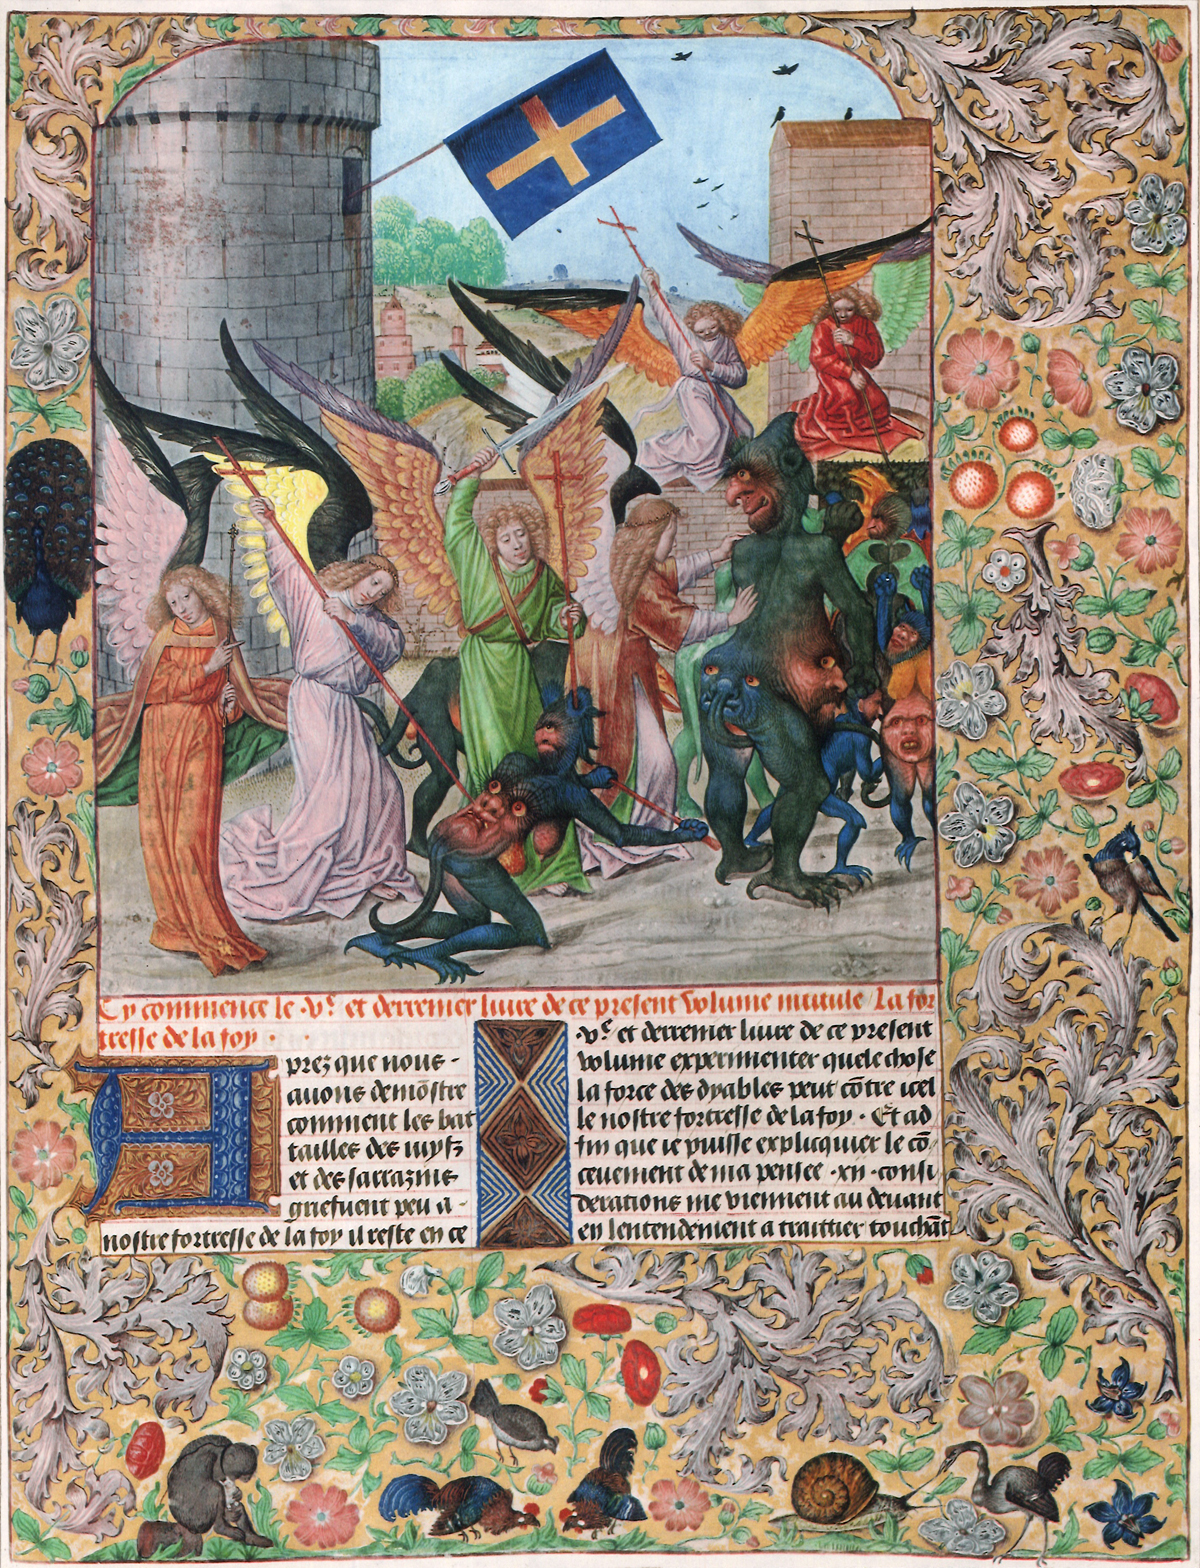 Cy commence le .vᵉ. et derrenier liure de ce present volume intitule La for
tresse de la foy . .
Aprez que nous .
auons demōstre
comment les bat
tailles des iuyfz
et des sarrazins
grefuent peu a .
nostre fortresse de la foy il reste en ce
.vᵉ. et derrenier liure de ce present
volume experimenter quele chose
la force des dyables peut cōtre icel
le nostre fortresse de la foy . Et ad
fin que ie puisse explicquier le cō
ceuement de ma pensee .xii. consi
derations me viennent au deuant
en lentendement a traittier touchāt